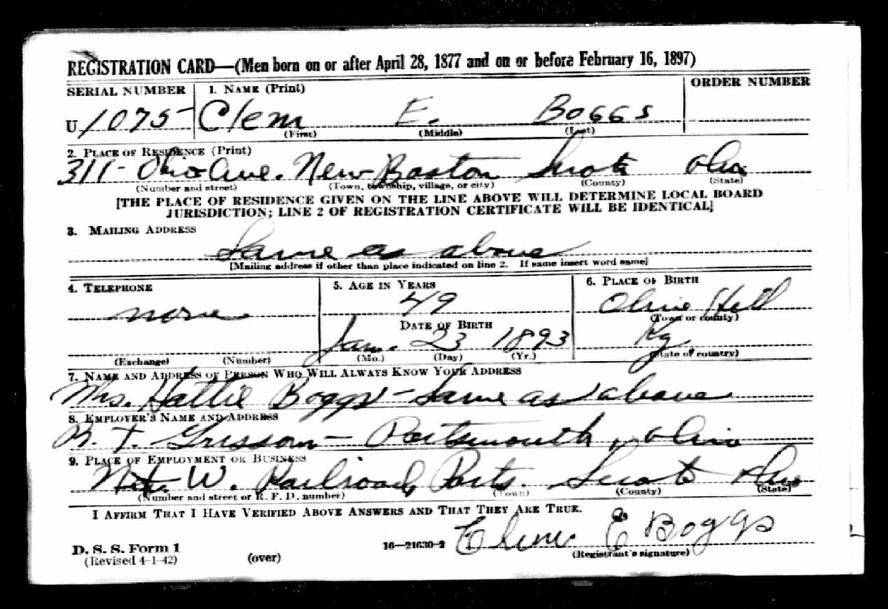 REGISTRATION CARD—(Men born on or after April 28, 1877 and on or before February 16, 1897)
SERIAL NUMBER 1. NAME (Print) ORDER NUMBER
U 1075 Clem E. Boggs
(First) (Middle) (Last)
2. PLACE OF RESIDENCE (Print)
311- Ohio Ave. New Boston Scioto Ohio
(Number and street) (Town, township, village, or city) (County) (State)
[THE PLACE OF RESIDENCE GIVEN ON THE LINE ABOVE WILL DETERMINE LOCAL BOARD
JURISDICTION; LINE 2 OF REGISTRATION CERTIFICATE WILL BE IDENTICAL]
3. MAILING ADDRESS
Same as above
[Mailing address if other than place indicated on line 2. If same insert word same]
4. TELEPHONE 5. AGE IN YEARS 6. PLACE OF BIRTH
none 49 Olive Hill
DATE OF BIRTH (Town or county)
Jan. 23 1893 Ky
(Exchange) (Number) (Mo.) (Day) (Yr.) (State or country)
7. NAME AND ADDRESS OF PERSON WHO WILL ALWAYS KNOW YOUR ADDRESS
Mrs. Hattie Boggs - Same as above
8. EMPLOYER'S NAME AND ADDRESS
T. Grissom - Portsmouth, Ohio
9. PLACE OF EMPLOYMENT OR BUSINESS
N & W. Railroad, Ports. Scioto Ohio
(Number and street or R. F. D. number) (Town) (County) (State)
I AFFIRM THAT I HAVE VERIFIED ABOVE ANSWERS AND THAT THEY ARE TRUE.
D. S. S. Form 1 16—21630-2 Clem E Boggs
(Revised 4-1-42) (over) (Registrant's signature)